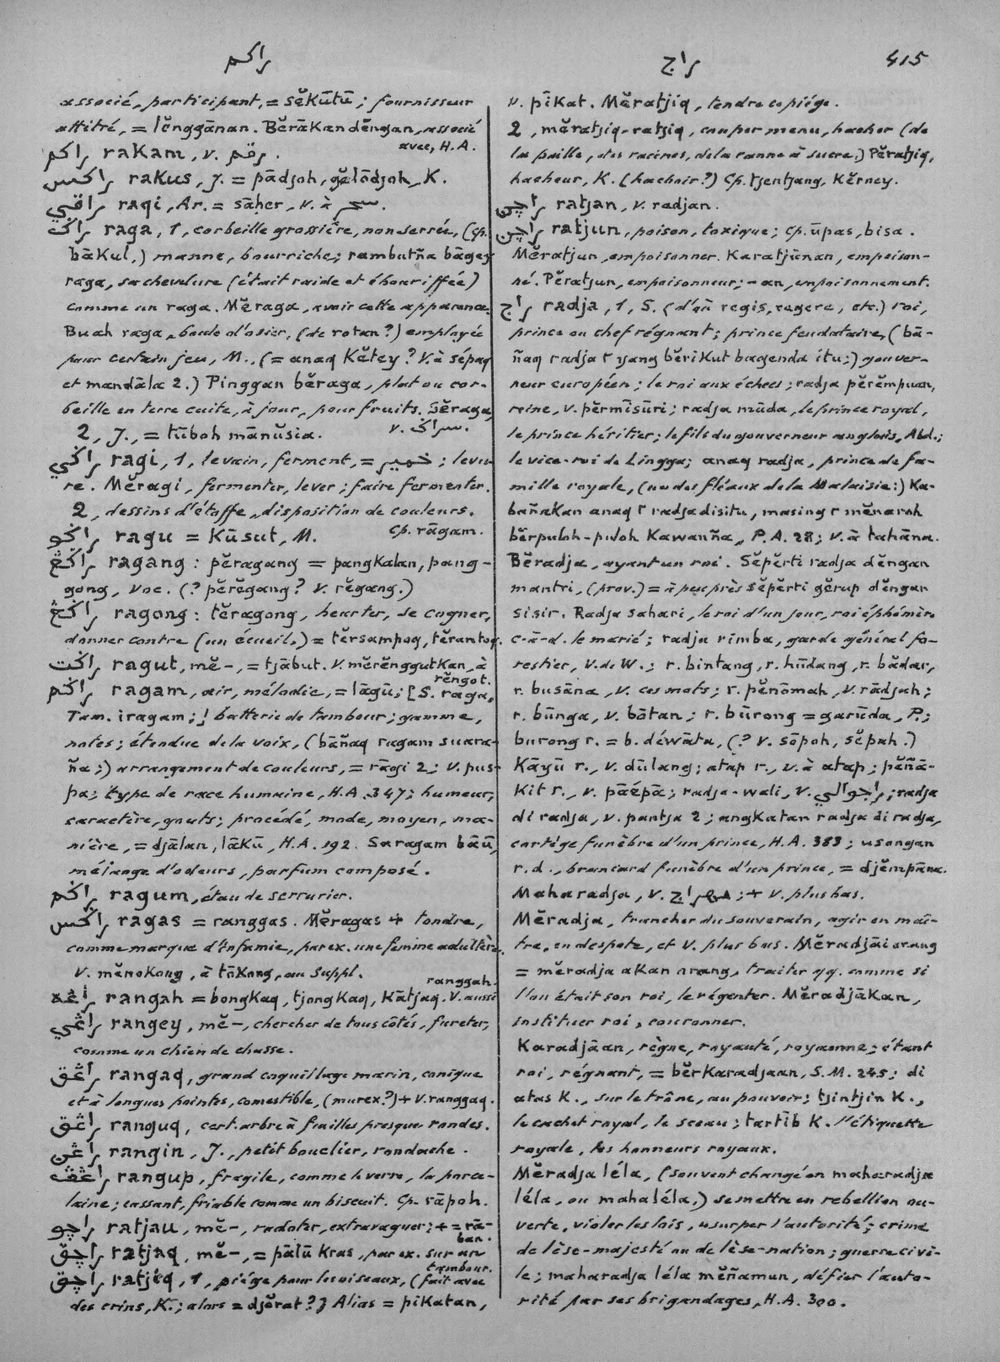 راكم
راج
415
associé, participant, = sĕkūtū; fournisseur
attitré, = lĕnggānan. Bĕrākan dĕngan, associé
avec, H.A.
راكم rakam, v. رقم.
راكس rakus, J. = pādjoh, gĕlōdjoh, K.
راقي raqi, Ar. = sāḥer, v. à سحر.
راݢ raga, 1, corbeille grossière, non serrée, (cp.
bākul,) manne, bourriche; rambutña bāgey
raga, sa chevelure (était raide et ébouriffée)
comme un raga. Mĕraga, avoir cette apparence.
Buah raga, boule d'osier, (de rotan?) employée
pour certain jeu, M., (= anaq kĕtey? v. à sépaq
et mandāla 2.) Pinggan bĕraga, plat ou cor-
beille en terre cuite, à jour, pour fruits. Sĕraga,
v. سراݢ.
2, J., = tūboh mānŭsia.
راݢي ragi, 1, levain, ferment, = خمير; levu-
re. Mĕragi, fermenter, lever; faire fermenter.
2, dessins d'étoffe, disposition de couleurs.
Cp. rāgam.
راݢو ragu = kūsut, M.
راݢڠ ragang: pĕragang = pangkalan, pang-
gong, voc. (? pĕrĕgang? v. rĕgang.)
راݢڠ ragong: tĕragong, heurter, se cogner,
donner contre (un écueil,) = tĕrsampoq, tĕrantoq.
راݢت ragut, mĕ-, = tjābut. v. mĕrĕnggutkan, à
rĕngot.
راݢم ragam, air, mélodie, = lāgū; [S. raga,
Tam. iragam;] batterie de tambour; gamme,
notes; étendue de la voix, (bāñaq ragam suara-
ña;) arrangement de couleurs, = rāgi 2; v. pus-
pa; type de race humaine, H.A. 347; humeur,
caractère, gouts; procédé, mode, moyen, ma-
nière, = djālan, lākū, H.A. 192. Saragam bāū,
mélange d'odeurs, parfum composé.
راݢم ragum, étau de serrurier.
راݢس ragas = ranggas. Mĕragas + tondre,
comme marque d'infamie, par ex. une femme adultère.
v. mĕnokong, à tōkong, au Suppl.
ranggah.
راڠه rangah = bongkaq, tjongkaq, kātjaq. v. aussi
راڠي rangey, mĕ-, chercher de tous côtés, fureter,
comme un chien de chasse.
راڠق rangaq, grand coquillage marin, conique
et à longues pointes, comestible, (murex?) + v. ranggaq.
راڠق ranguq, cert. arbre à feuilles presque rondes.
راڠن rangin, J., petit bouclier, rondache.
راڠڤ rangup, fragile, comme le verre, la porce-
laine; cassant, friable comme un biscuit. Cp. rāpoh.
راچو ratjau, mĕ-, radoter, extravaguer; + = rā-
ban.
راچق ratjaq, mĕ-, = pālū kras, par ex. sur un
tambour.
راچق ratjĕq, 1, piége pour les oiseaux, (fait avec
des crins, K.; alors = djĕrat?) Alias = pikatan,
v. pīkat. Mĕratjiq, tendre ce piége.
2, mĕratjiq-ratjiq, couper menu, hacher (de
la paille, des racines, de la canne à sucre.) Pĕratjiq,
hacheur, K. (hachoir?) Cp. tjentjang, kĕrney.
راچن ratjan, v. radjan.
راچن ratjun, poison, toxique; cp. ūpas, bisa.
Mĕratjun, empoisonner. Karatjūnan, empoison-
né. Pĕratjun, empoisonneur; -an, empoisonnement.
راج radja, 1, S. (d'où regis, regere, etc.) roi,
prince ou chef régnant; prince feudataire, (bā-
ñaq radja ٢ yang bĕrikut bagenda itu;) gouver-
neur européen; le roi aux échecs; radja pĕrĕmpuan,
reine, v. pĕrmīsūri; radja mūda, le prince royal,
le prince héritier; le fils du gouverneur anglois, Abd.;
le vice-roi de Lingga; anaq radja, prince de fa-
mille royale, (un des fléaux de la Malaisie:) Ka-
bañakan anaq ٢ radja disitu, masing ٢ mĕnaroh
bĕrpuloh-puloh kawanña, P.A. 28; v. à tahāna.
Bĕradja, ayant un roi. Sĕpĕrti radja dĕngan
mantri, (prov.) = à peu près sĕpĕrti gĕrup dĕngan
sisir. Radja sahari, le roi d'un jour, roi éphémère
c-à-d. le marié; radja rimba, garde général fo-
restier, V. de W.; r. bintang, r. hūdang, r. bĕdar,
r. busāna, v. ces mots; r. pĕnōmah, v. rādjah;
r. būnga, v. bātan; r. būrong = garūda, P.;
burong r. = b. déwāta, (? v. sōpoh, sĕpah.)
Kāyū r., v. dūlang; atap r., v. à atap; pĕñā-
kit r., v. pāépā; radja-wali, v. راجوالي; radja
di radja, v. pantja 2; angkatan radja di radja,
cortége funèbre d'un prince, H.A. 383; usongan
r. d., brancard funèbre d'un prince, = djĕmpāna.
Maharadja, v. مهراج; + v. plus bas.
Mĕradja, trancher du souverain, agir en maî-
tre, en despote, et v. plus bas. Mĕradjāi orang
= mĕradja akan orang, traiter qq. comme si
l'on était son roi, le régenter. Mĕradjākan,
instituer roi, couronner.
Karadjāan, règne, royauté, royaume; étant
roi, régnant, = bĕrkaradjaan, S.M. 245; di
atas k., sur le trône, au pouvoir; tjintjin k.,
le cachet royal, le sceau; tartib k. l'étiquette
royale, les honneurs royaux.
Mĕradja léla, (souvent changé en maharadja
léla, ou mahaléla,) se mettre en rebellion ou-
verte, violer les lois, usurper l'autorité; crime
de lèse-majesté ou de lèse-nation; guerre civi-
le; maharadja léla mĕñamun, défier l'auto-
rité par ses brigandages, H.A. 300.